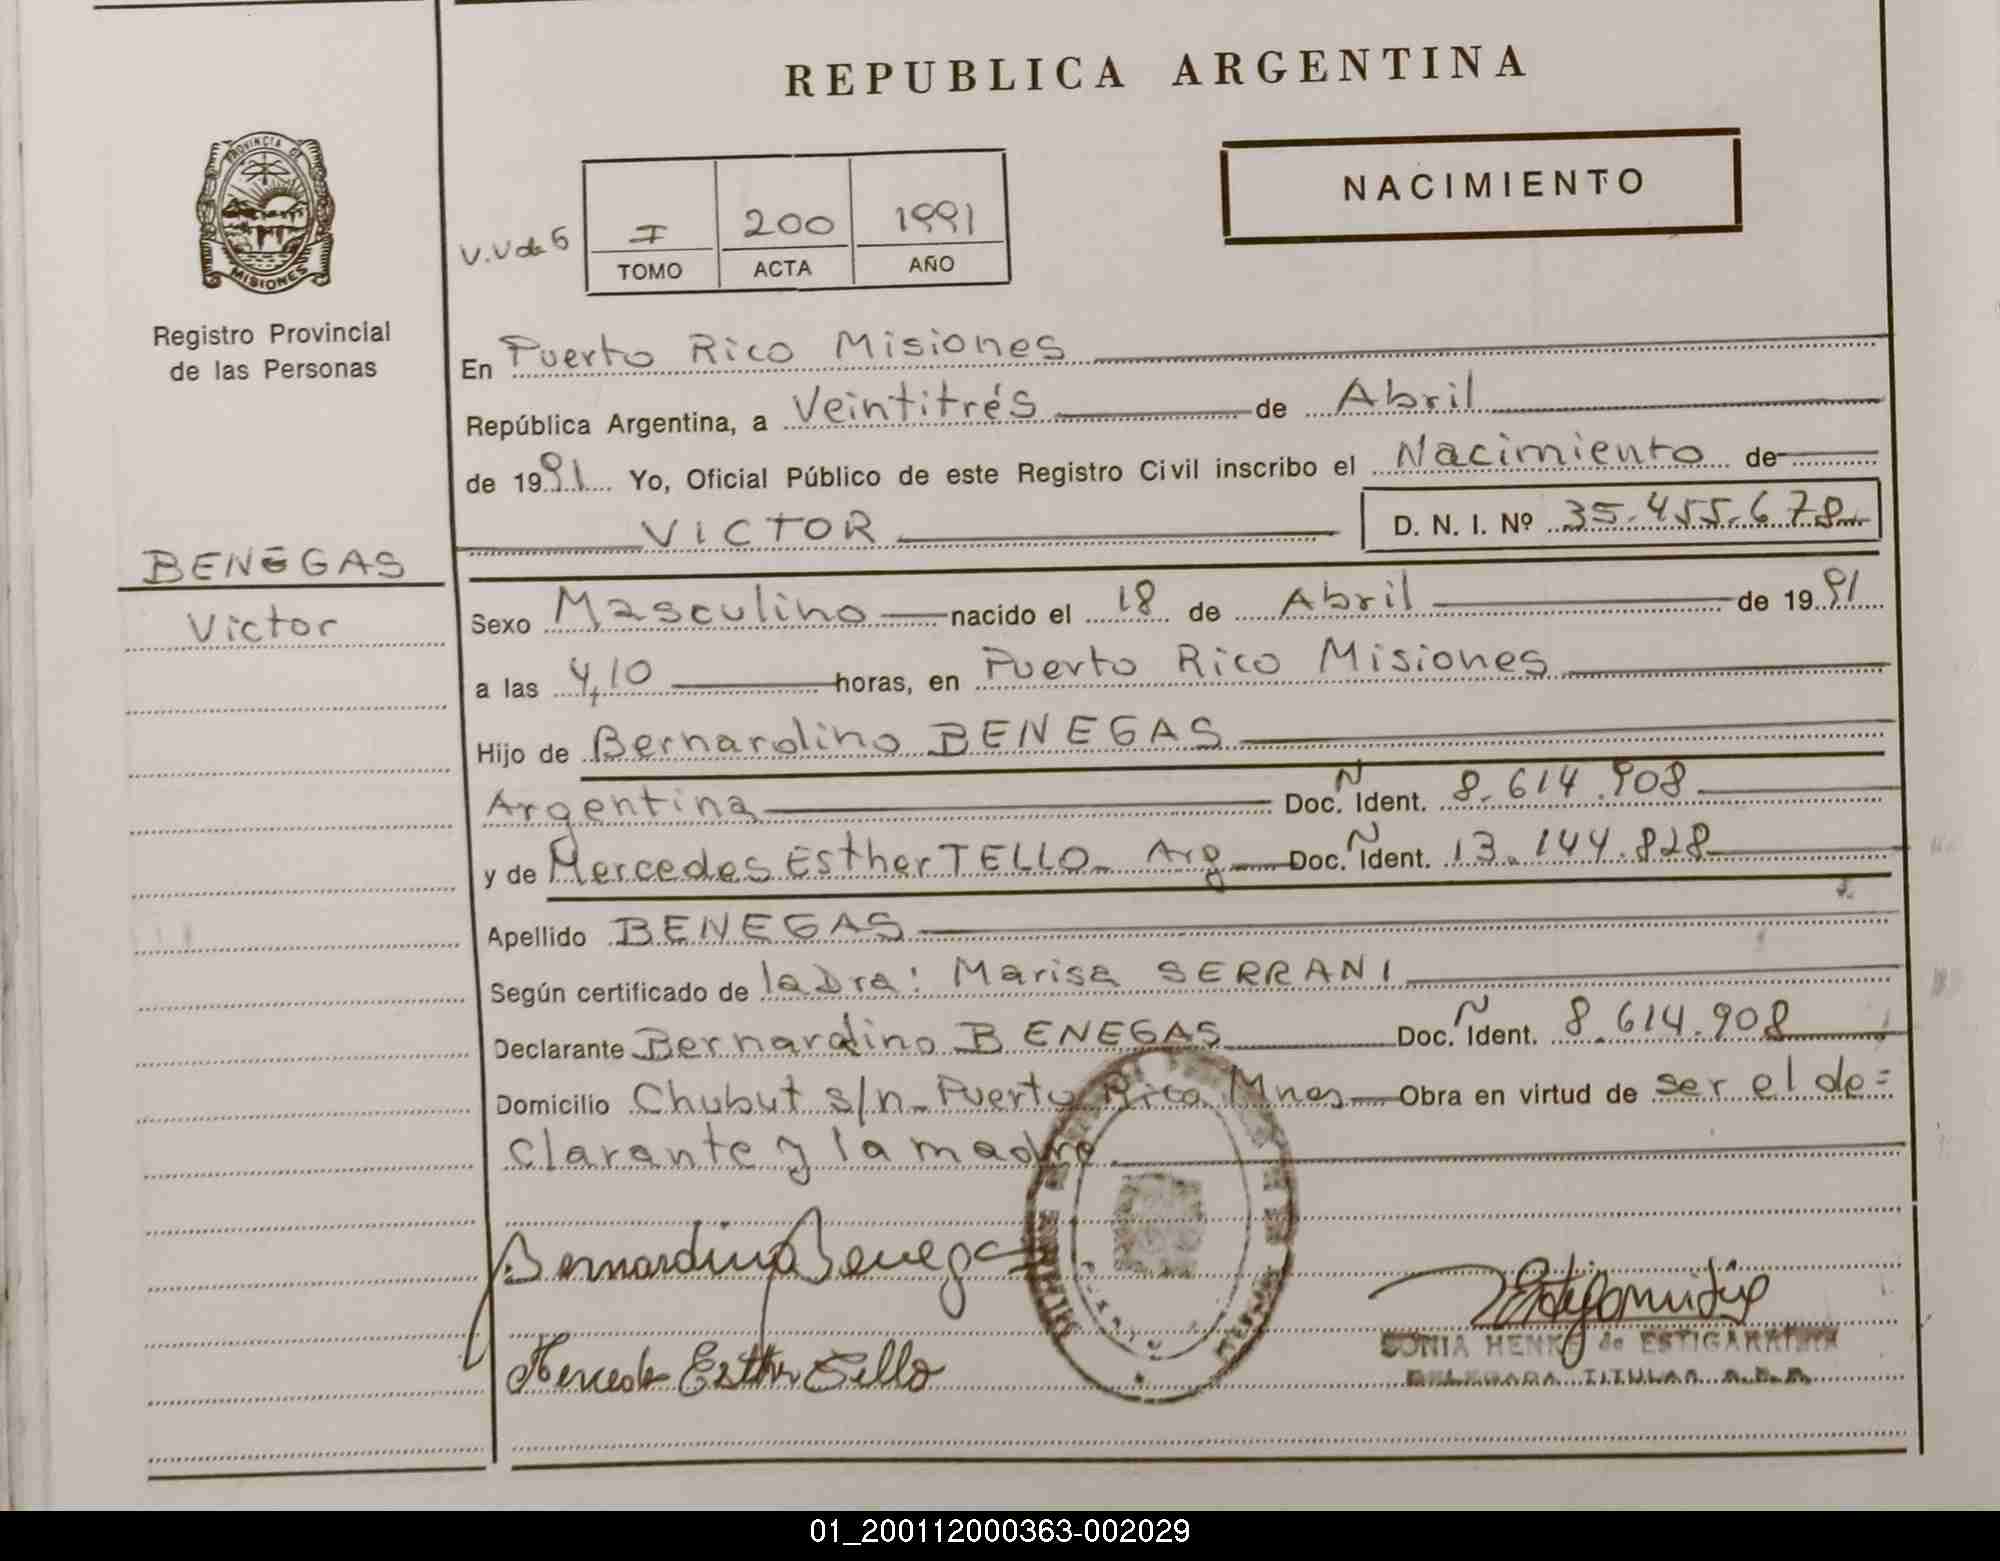 REPUBLICA ARGENTINA
PROVINCIA DE
MISIONES
Registro Provincial
de las Personas
NACIMIENTO
V.V de 5
I 200 1991
TOMO ACTA AÑO
En Puerto Rico Misiones
República Argentina, a Veintitrés de Abril
de 1991 Yo, Oficial Público de este Registro Civil inscribo el Nacimiento de
VICTOR D. N. I. Nº 35.455.678
BENEGAS
Victor
Sexo Masculino nacido el 18 de Abril de 1991
a las 4,10 horas, en Puerto Rico Misiones
Hijo de Bernardino BENEGAS
Argentina Doc. Ñ Ident. 8.614.908
y de Mercedes Esther TELLO Arg Doc. Ñ Ident. 13.144.828
Apellido BENEGAS
Según certificado de la Dra: Marisa SERRANI
Declarante Bernardino BENEGAS Doc. Ñ Ident. 8.614.908
Domicilio Chubut s/n Puerto Rico Mnes Obra en virtud de ser el de=
clarante y la madre
Bernardino Benegas
Mercedes Esther Tello
SONIA HENKE de ESTIGARRIBIA
DELEGADA TITULAR R.P.P.
01_200112000363-002029